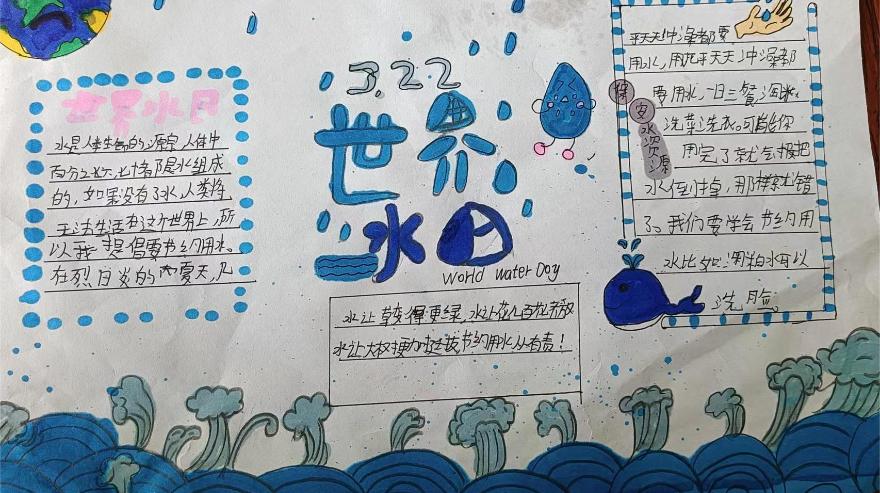 世界水日
水是人类生命的源泉,人体中
百分之六、七十都是水组成
的,如果没有了水,人类将
无法生活在这个世界上,所
以我提倡要节约用水。
在烈日炎的夏天,几
3,22
世界
水日
World water Day
水让草变得更绿,水让花儿百花齐放
水让大树更加挺拔节约用水人有责!
平天天冲澡都要
用水,用完平天天冲澡都
要用水,一日三餐淘米、
洗菜洗衣。可能你
用完了就会把
水倒掉,那样就错
了。我们要学会节约用
水比如淘米水可以
洗脸
保
安
水资源